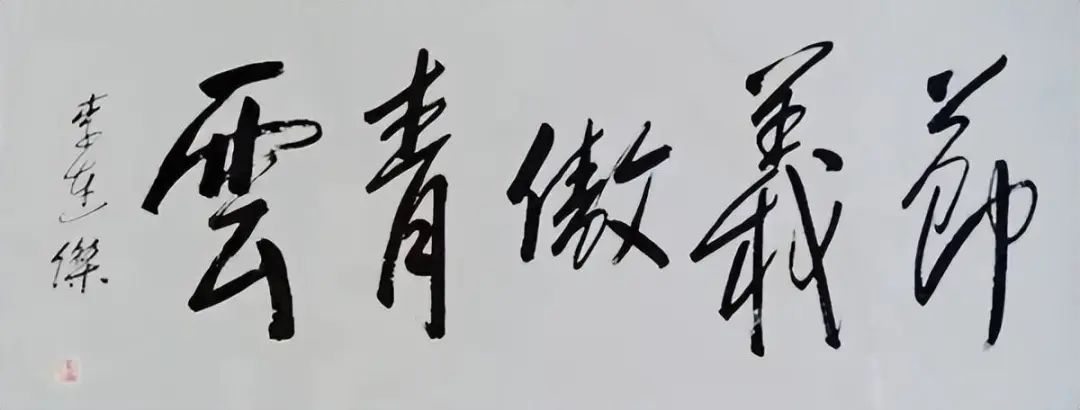 節義傲青雲
李連傑